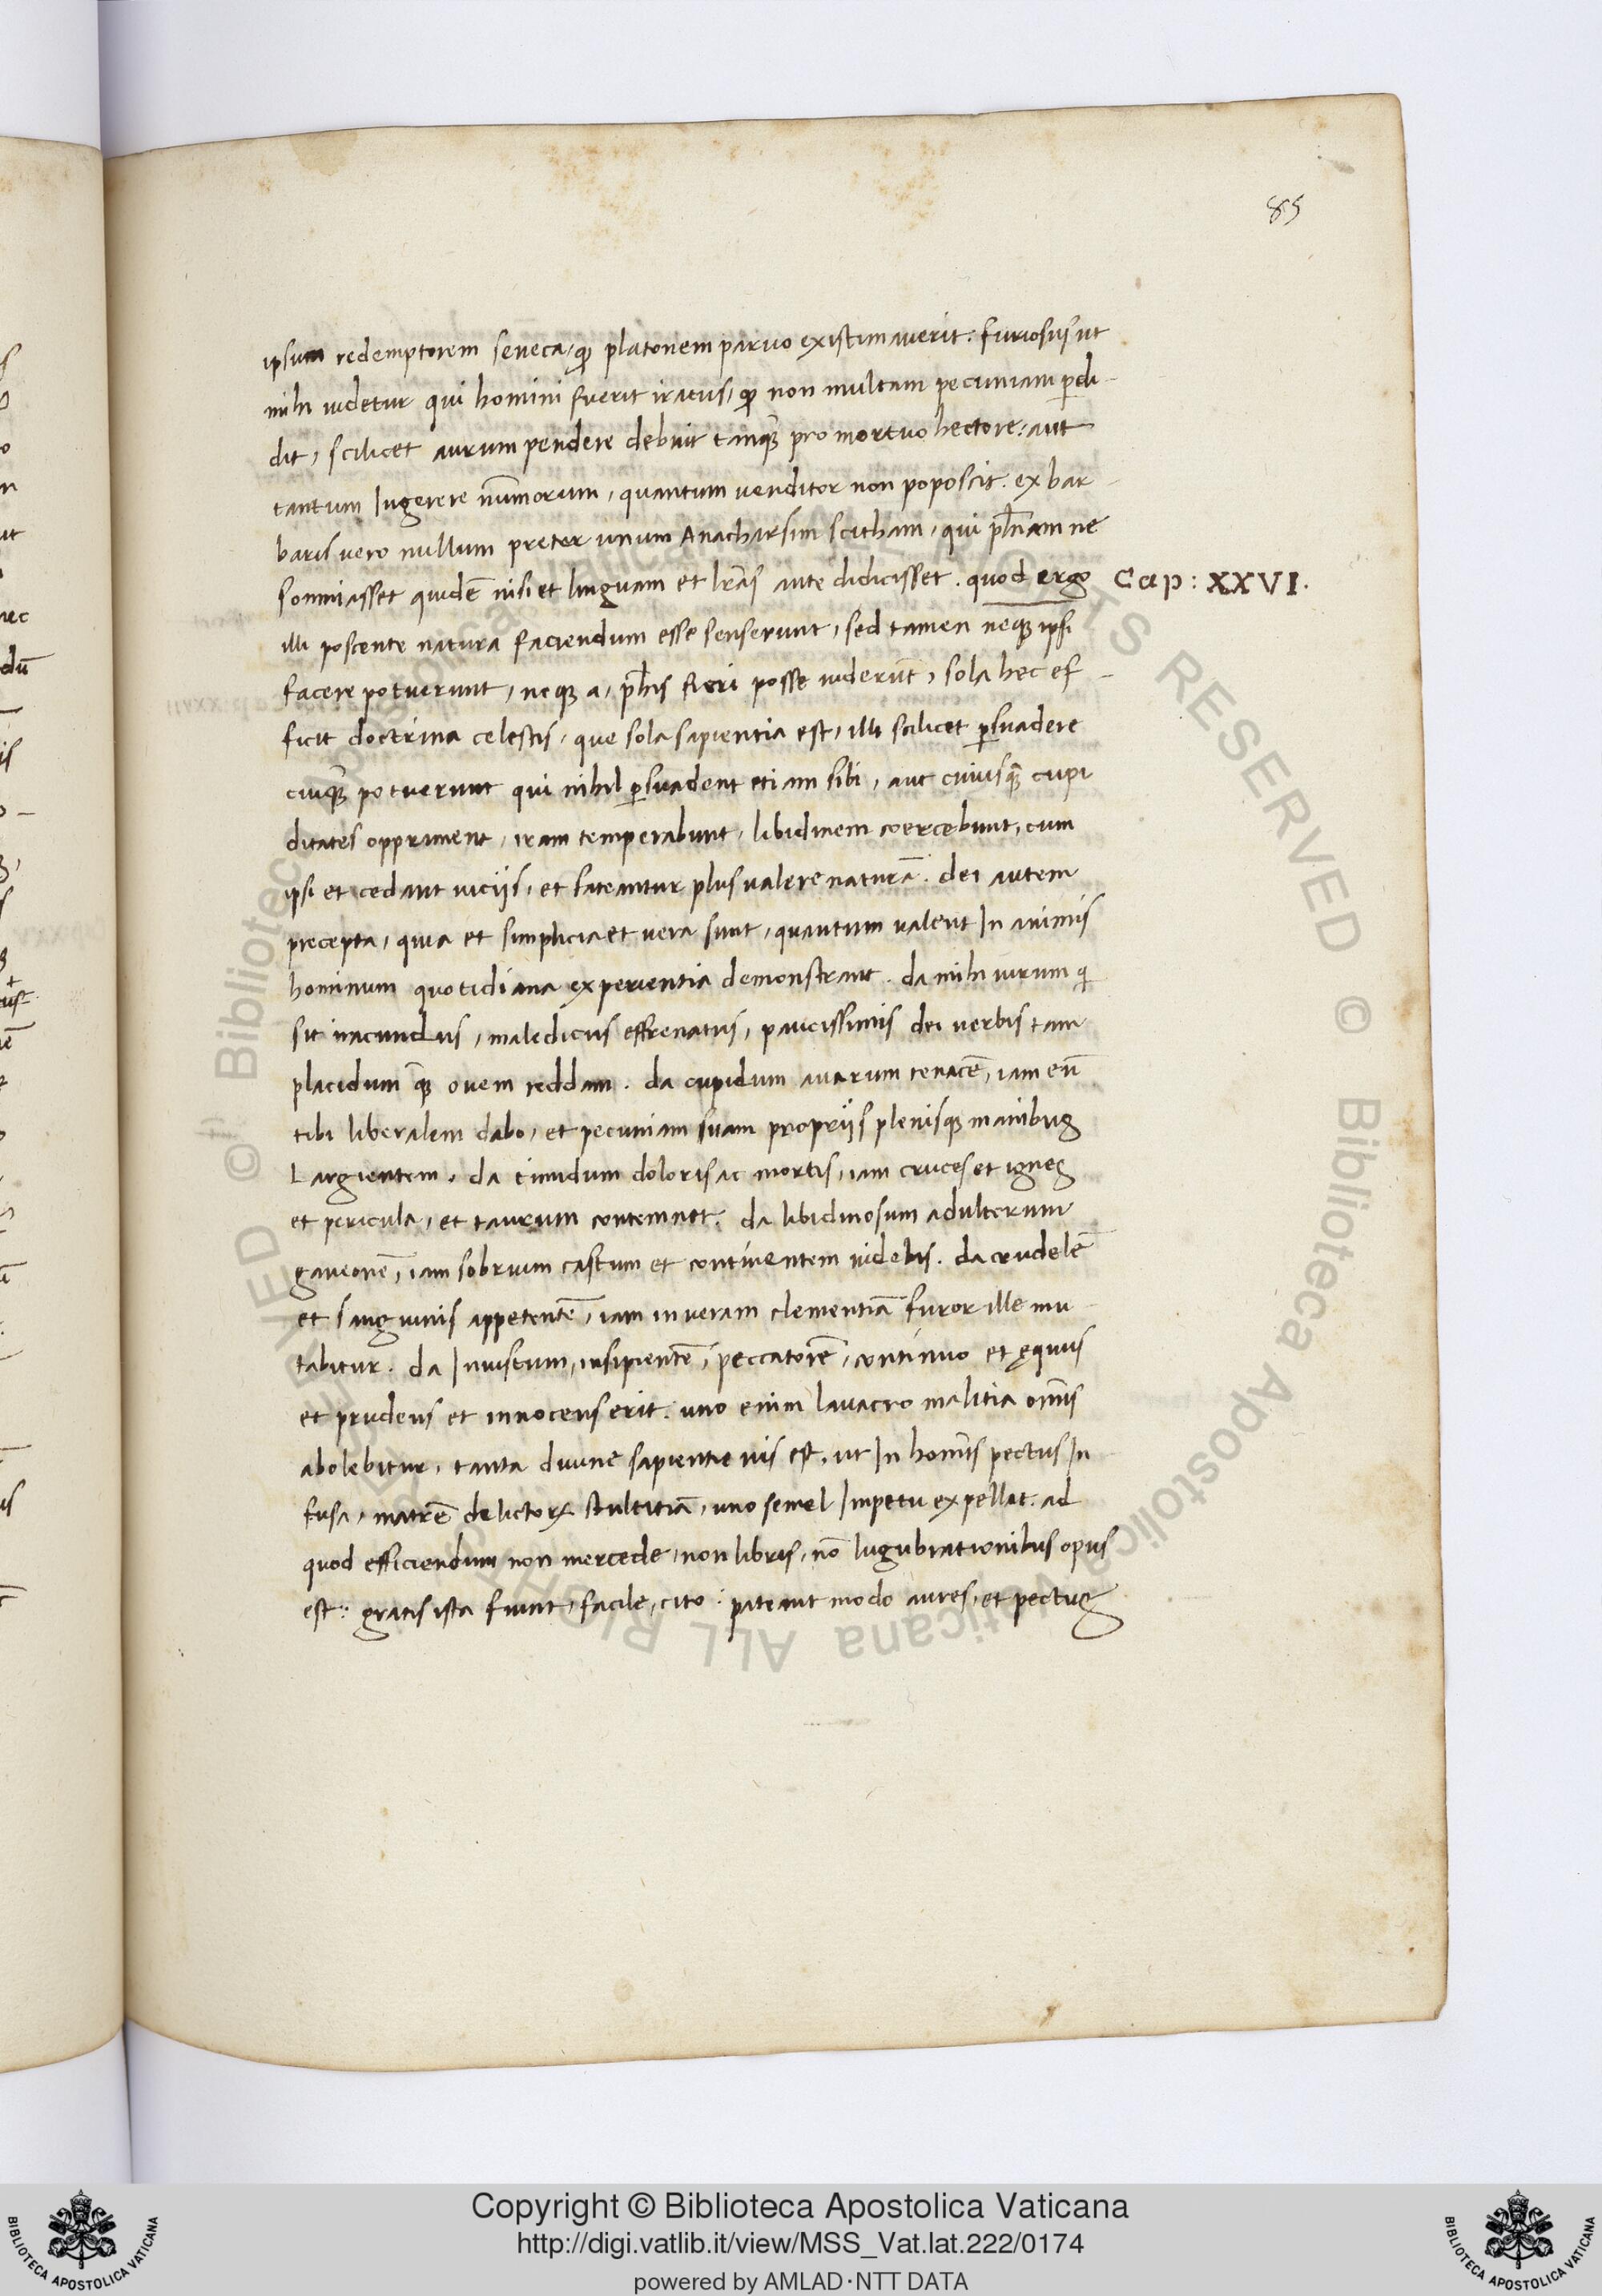 85
ipsum redemptorem seneca, ꝙ platonem paruo existimauerit: furiosus ut
mihi uidetur qui homini fuerit iratus, ꝙ non multam pecuniam ꝑdi-
dit, scilicet aurum pendere debuit tanqꝫ̃ pro mortuo hectore: aut
tantum Ingerere nũmorum, quantum uenditor non poposcit. ex bar-
baris uero nullum preter unum Anacharsim scitham, qui ph̃iam ne
somniasset quidẽ nisi et linguam et lr̃as ante didicisset. quod ergo
Cap: XXVI.
illi poscente natura faciendum esse senserunt, sed tamen neqꝫ ipsi
facere potuerunt, neqꝫ a, ph̃is fieri posse uiderũt, sola hec ef-
ficit doctrina celestis, que sola sapientia est, illi scilicet ꝑsuadere
cuiqꝫ̃ potuerunt qui nihil ꝑsuadent etiam sibi, aut cuiusqꝫ̃ cupi
ditates oppriment, iram temperabunt, libidinem coercebunt, cum
ipsi et cedant uicijs, et fateantur plus ualere naturã. dei autem
precepta, quia et simplicia et uera sunt, quantum ualent In animis
hominum quotidiana experientia demonstrant. da mihi uirum qi
sit iracundus, maledicus effrenatus, paucissimis dei uerbis tam
placidum qꝫ̃ ouem reddam. da cupidum auarum tenacẽ, iam eũ
tibi liberalem dabo, et pecuniam suam proprijs plenisqꝫ manibus
Largientem. da timidum doloris ac mortis, iam cruces et ignes
et pericula, et taurum contemnet. da libidinosum adulterum
ganeonẽ, iam sobrium castum et continentem uidebis. da crudelẽ
et sanguinis appetentẽ, iam in ueram clementiã furor ille mu-
tabitur. da Iniustum, insipientẽ, peccatorẽ, continuo et ęquus
et prudens et innocens erit. uno enim lauacro malitia om̃is
abolebitur, tanta diuine sapientie uis est, ut In homĩs pectus In
fusa, matrẽ delictoꝝ stultitiã, uno semel Impetu expellat. ad
quod efficiendum non mercede, non libris, nõ lugubrationibus opus
est: gratis ista fiunt, facile, cito: pateant modo aures, et pectus
Copyright © Biblioteca Apostolica Vaticana
http://digi.vatlib.it/view/MSS_Vat.lat.222/0174
powered by AMLAD·NTT DATA